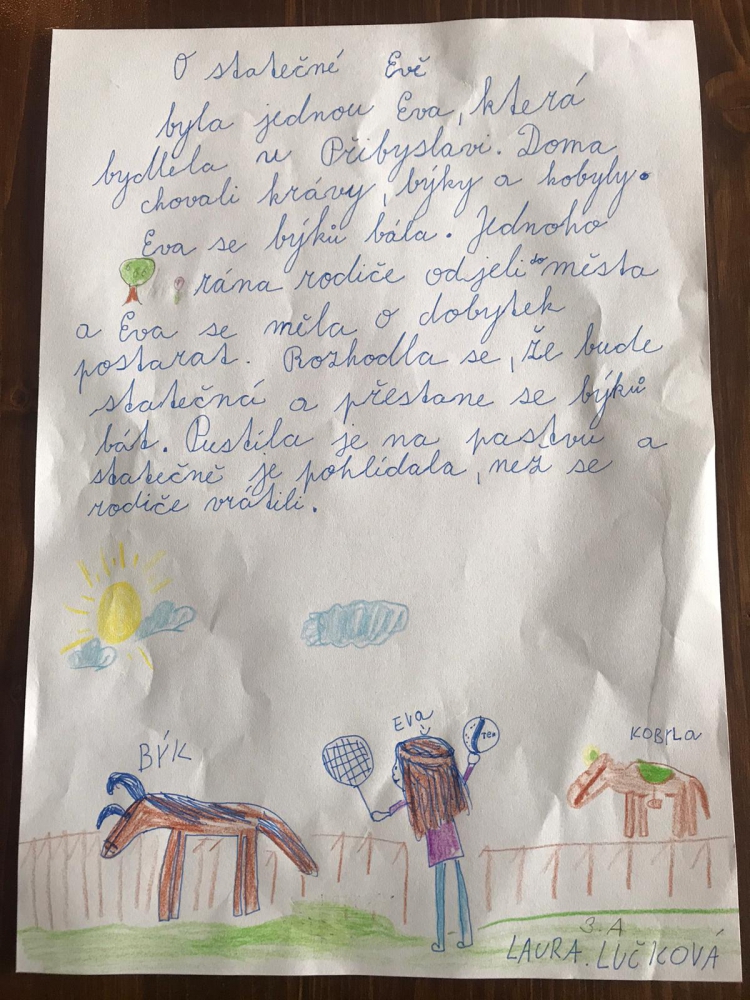 O statečné Evě
byla jednou Eva, která
bydlela u Přibyslavi. Doma
chovali krávy, býky a kobyly.
Eva se býků bála. Jednoho
rána rodiče odjeli do města
a Eva se měla o dobytek
postarat. Rozhodla se, že bude
statečná a přestane se býků
bát. Pustila je na pastvu a
statečně je pohlídala, než se
rodiče vrátili.
BÝK
EVA
KOBYLA
3.A
LAURA.LUČIKOVÁ